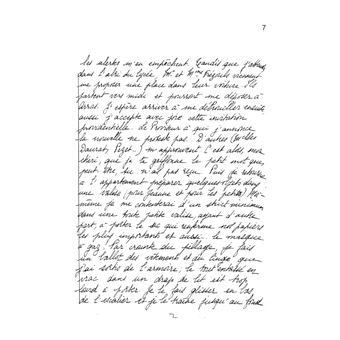 7
les alertes m'en empêchent. Tandis que j'attends
dans l'abri du lycée M. et Mme viennent
me proposer une place dans leur voiture. Ils
partent vers midi et pourront me déposer à
Arras. J'espère arriver à me débrouiller ensuite
aussi j'accepte avec joie cette invitation
providentielle. Le Proviseur à qui j'annonce
la nouvelle ne peste pas. D'autres
Daurat, Pizet m'approuvent. C'est alors, mon
chéri, que je te griffonne le petit mot que,
peut être, tu n'as pas reçu. Puis je retourne
à l'appartement préparer quelques dans
une valise (pour Jeanne et pour les petits). Moi-
même je me contenterai d'un strict minimum
dans une toute petite valise, ayant d'autre
part, à porter le sac qui renferme nos papiers
les plus importants et aussi le masque
à gaz. Par crainte du pillage, je fais
un ballot des vêtements et du linge que
j'ai sortis de l'armoire, le tout entassé en
vrac dans un drap de lit est trop
lourd à porter. Je le fais glisser en bas
de l'escalier et je le traîne jusqu'au fond